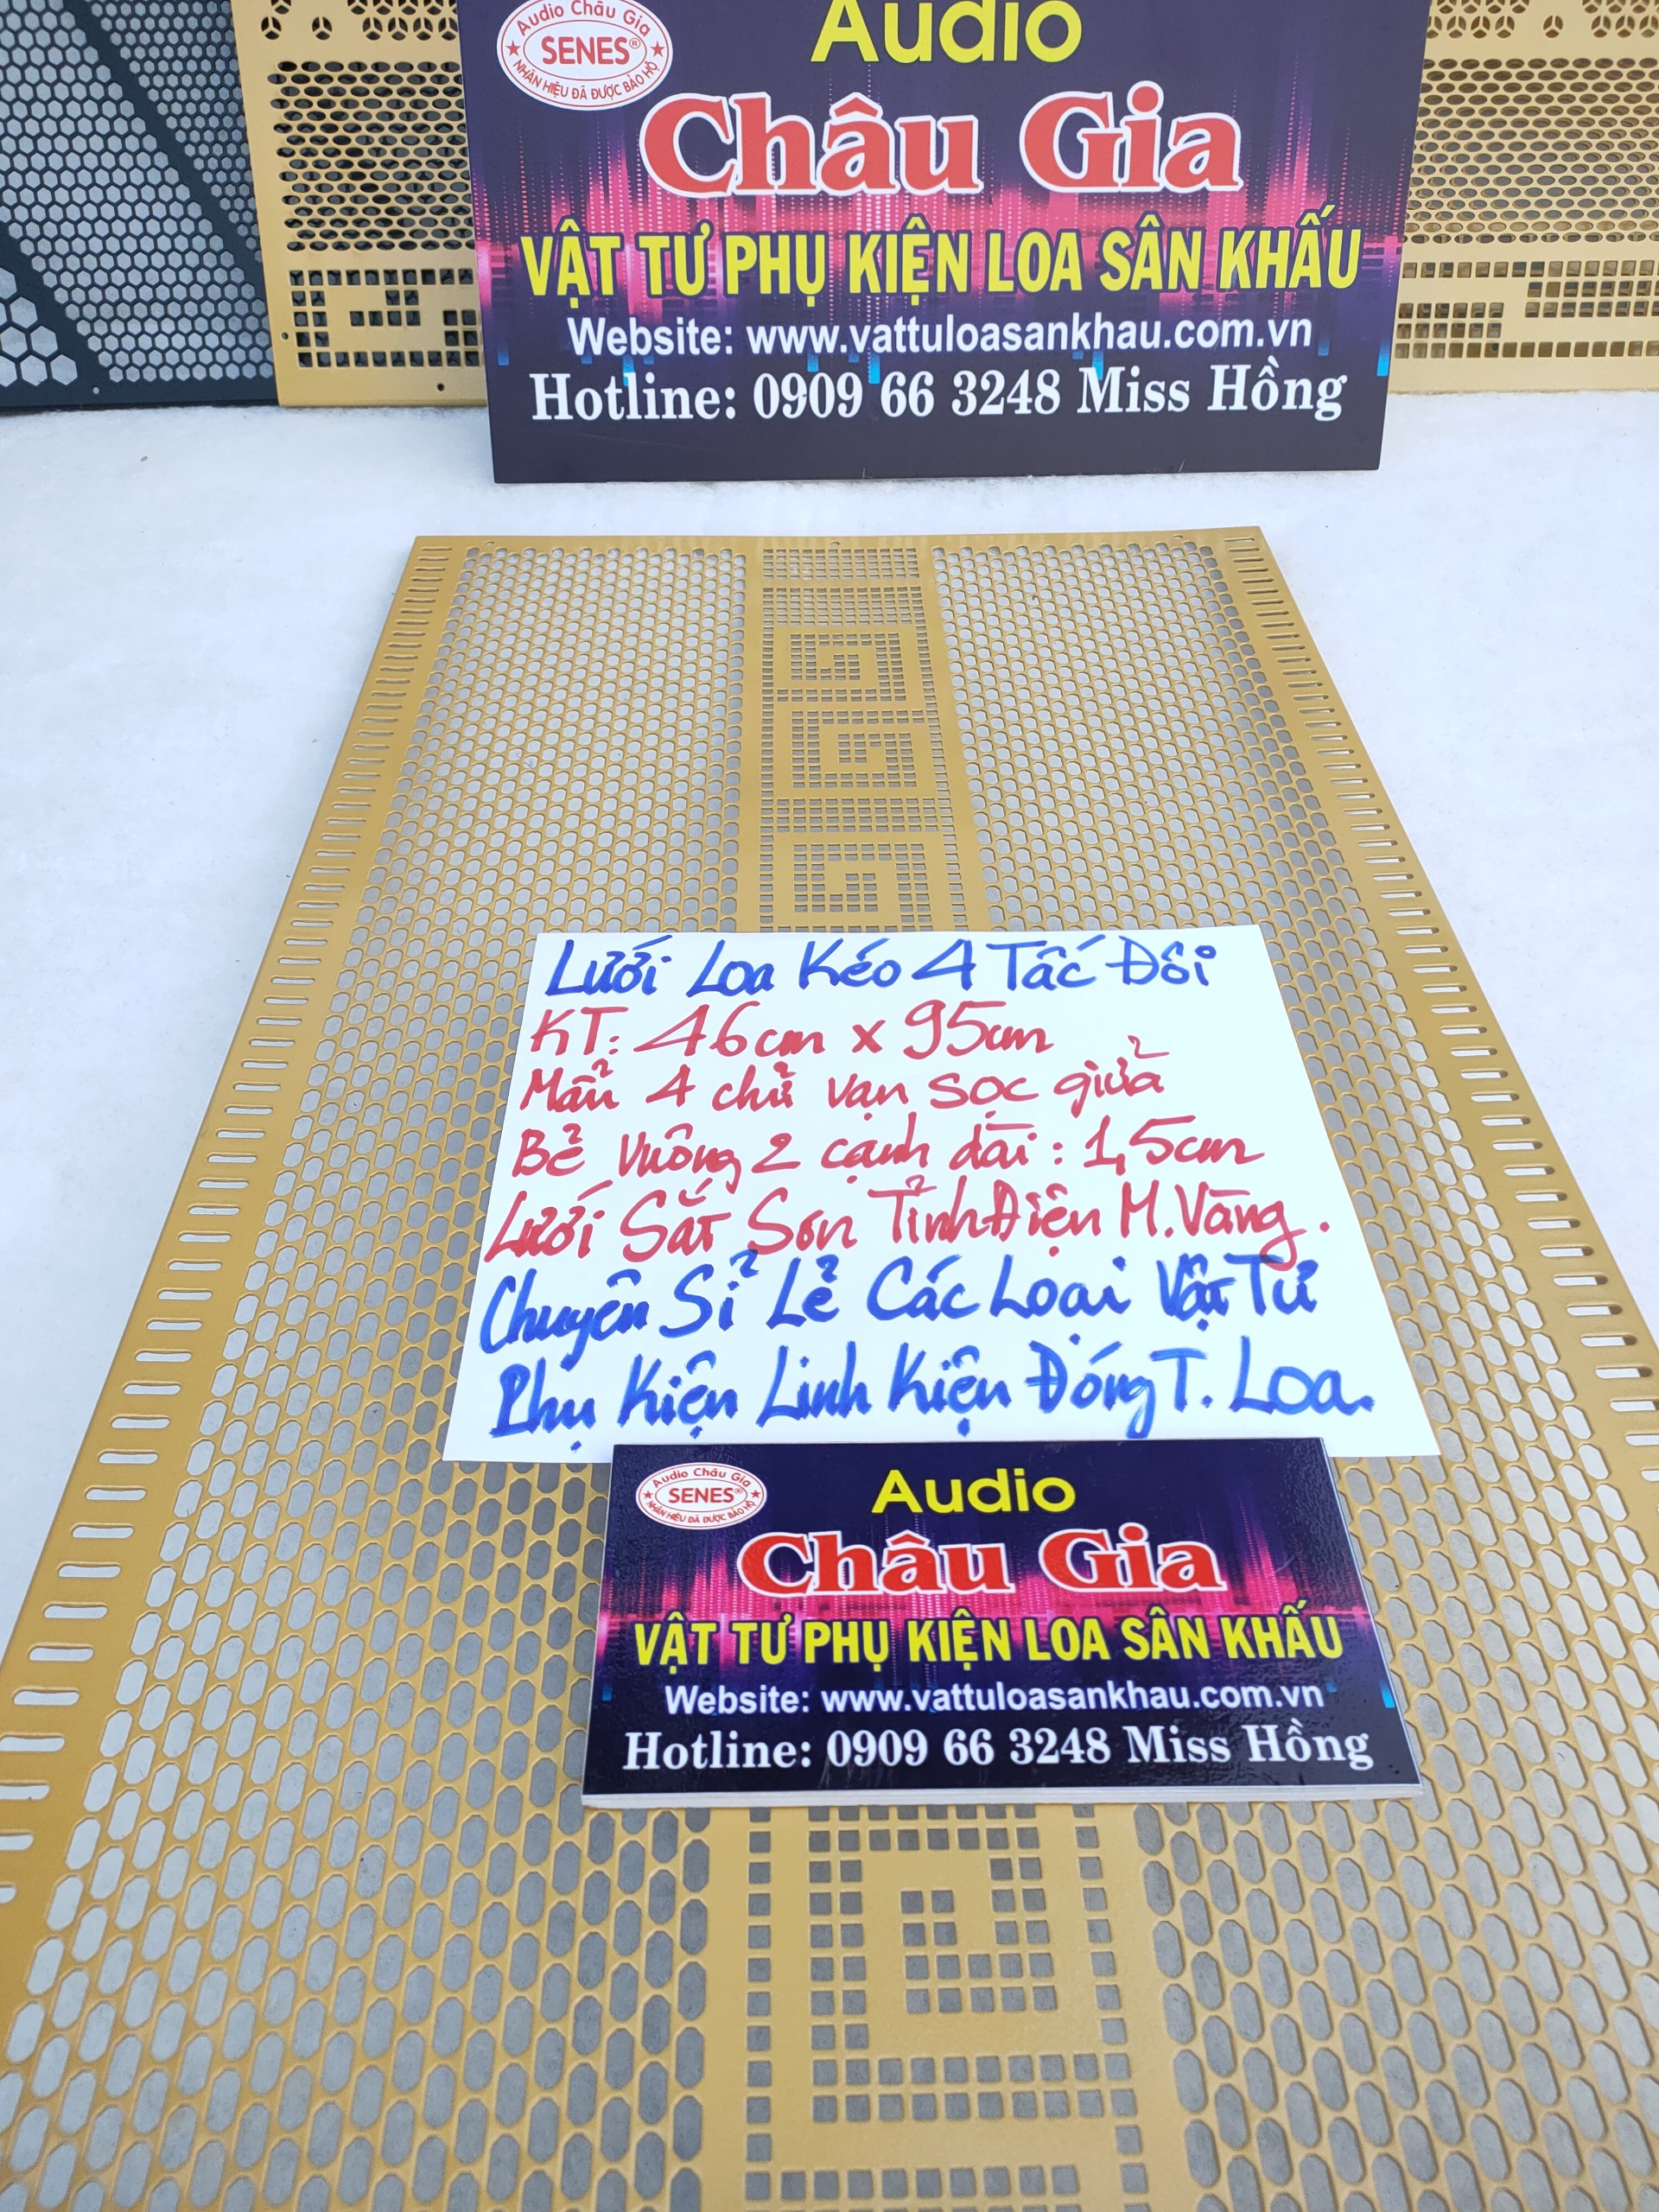 Audio Châu Gia
SENES®
NHÃN HIỆU ĐÃ ĐƯỢC BẢO HỘ
Audio
Châu Gia
VẬT TƯ PHỤ KIỆN LOA SÂN KHẤU
Website: www.vattuloasankhau.com.vn
Hotline: 0909 66 3248 Miss Hồng
Lưới Loa Kéo 4 Tấc Đôi
KT: 46cm x 95cm
Mẫu 4 chữ vạn sọc giữa
Bẻ Vuông 2 cạnh dài: 1,5cm
Lưới Sắt Sơn Tĩnh Điện M. Vàng.
Chuyên Sỉ Lẻ Các Loại Vật Tư
Phụ Kiện Linh Kiện Đóng T. Loa.
Audio Châu Gia
SENES®
NHÃN HIỆU ĐÃ ĐƯỢC BẢO HỘ
Audio
Châu Gia
VẬT TƯ PHỤ KIỆN LOA SÂN KHẤU
Website: www.vattuloasankhau.com.vn
Hotline: 0909 66 3248 Miss Hồng